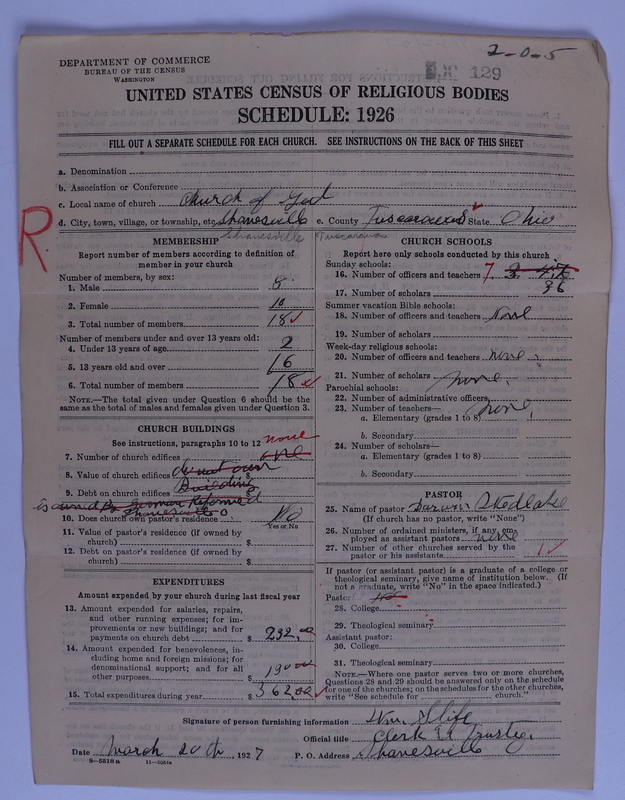 2-0-5
DEPARTMENT OF COMMERCE
BUREAU OF THE CENSUS
WASHINGTON
129
UNITED STATES CENSUS OF RELIGIOUS BODIES
SCHEDULE: 1926
FILL OUT A SEPARATE SCHEDULE FOR EACH CHURCH. SEE INSTRUCTIONS ON THE BACK OF THIS SHEET
a. Denomination
b. Association or Conference
c. Local name of church Church of God
d. City, town, village, or township, etc. Shanesville e. County Tuscarawas State Ohio
Shanesville Tuscarawas
R
MEMBERSHIP
Report number of members according to definition of
member in your church
Number of members, by sex:
1. Male 8
2. Female 10
3. Total number of members 18
Number of members under and over 13 years old:
4. Under 13 years of age 2
5. 13 years old and over 16
6. Total number of members 18
NOTE.—The total given under Question 6 should be the
same as the total of males and females given under Question 3.
CHURCH BUILDINGS
See instructions, paragraphs 10 to 12 none
7. Number of church edifices one
8. Value of church edifices $ do not own
9. Debt on church edifices $ Building
is owned By German Reformed
Shanesville O
10. Does church own pastor's residence No
Yes or No
11. Value of pastor's residence (if owned by
church) $
12. Debt on pastor's residence (if owned by
church) $
EXPENDITURES
Amount expended by your church during last fiscal year
13. Amount expended for salaries, repairs,
and other running expenses; for im-
provements or new buildings; and for
payments on church debt $ 232.00
14. Amount expended for benevolences, in-
cluding home and foreign missions; for
denominational support; and for all
other purposes $ 130.00
15. Total expenditures during year $ 362.00
CHURCH SCHOOLS
Report here only schools conducted by this church
Sunday schools:
16. Number of officers and teachers 7
17. Number of scholars 36
Summer vacation Bible schools:
18. Number of officers and teachers None
19. Number of scholars
Week-day religious schools:
20. Number of officers and teachers none
21. Number of scholars none.
Parochial schools:
22. Number of administrative officers
23. Number of teachers— none,
a. Elementary (grades 1 to 8)
b. Secondary
24. Number of scholars—
a. Elementary (grades 1 to 8)
b. Secondary
PASTOR
25. Name of pastor
(If church has no pastor, write "None")
26. Number of ordained ministers, if any, em-
ployed as assistant pastors none
27. Number of other churches served by the
pastor or his assistants 1
If pastor (or assistant pastor) is a graduate of a college or
theological seminary, give name of institution below. (If
not a graduate, write "No" in the space indicated.)
Pastor: No
28. College
29. Theological seminary
Assistant pastor:
30. College
31. Theological seminary
NOTE.—Where one pastor serves two or more churches,
Questions 28 and 29 should be answered only on the schedule
for one of the churches; on the schedules for the other churches,
write "See schedule for church."
Signature of person furnishing information Wm Slife
Official title Clerk Trustee
Date March 20th, 1927 P. O. Address Shanesville
8-5518 a 11-5051a